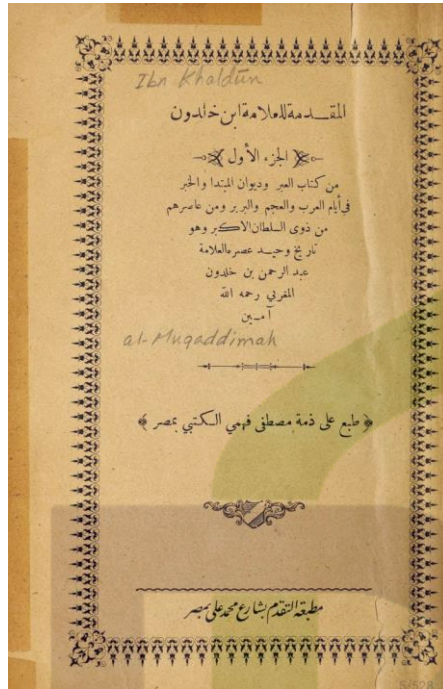 Ibn Khaldūn
المقدمة للعلامة ابن خلدون
الجزء الأول
من كتاب العبر وديوان المبتدا والخبر
في أيام العرب والعجم والبربر ومن عاصرهم
من ذوى السلطان الاكبر وهو
تاريخ وحيد عصره العلامة
عبد الرحمن بن خلدون
المغربي رحمه الله
آمين
al-Muqaddimah
﴿ طبع على ذمة مصطفى فهمي الكتبي بمصر ﴾
مطبعة التقدم بشارع محمد على بمصر
5/528